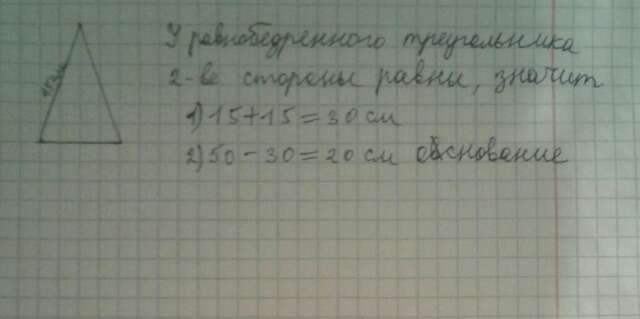 15см
У равнобедренного треугольника
2-ве стороны равны, значит
1) 15+15=30 см
2) 50-30=20 см обснование